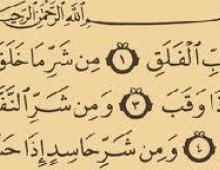 ٱللَّهِ ٱلرَّحْمَٰنِ ٱلرَّحِيمِ
بِ ٱلْفَلَقِ ١ مِن شَرِّ مَا خَلَقَ
ذَا وَقَبَ ٣ وَمِن شَرِّ ٱلنَّفَّ
٤ وَمِن شَرِّ حَاسِدٍ إِذَا حَ